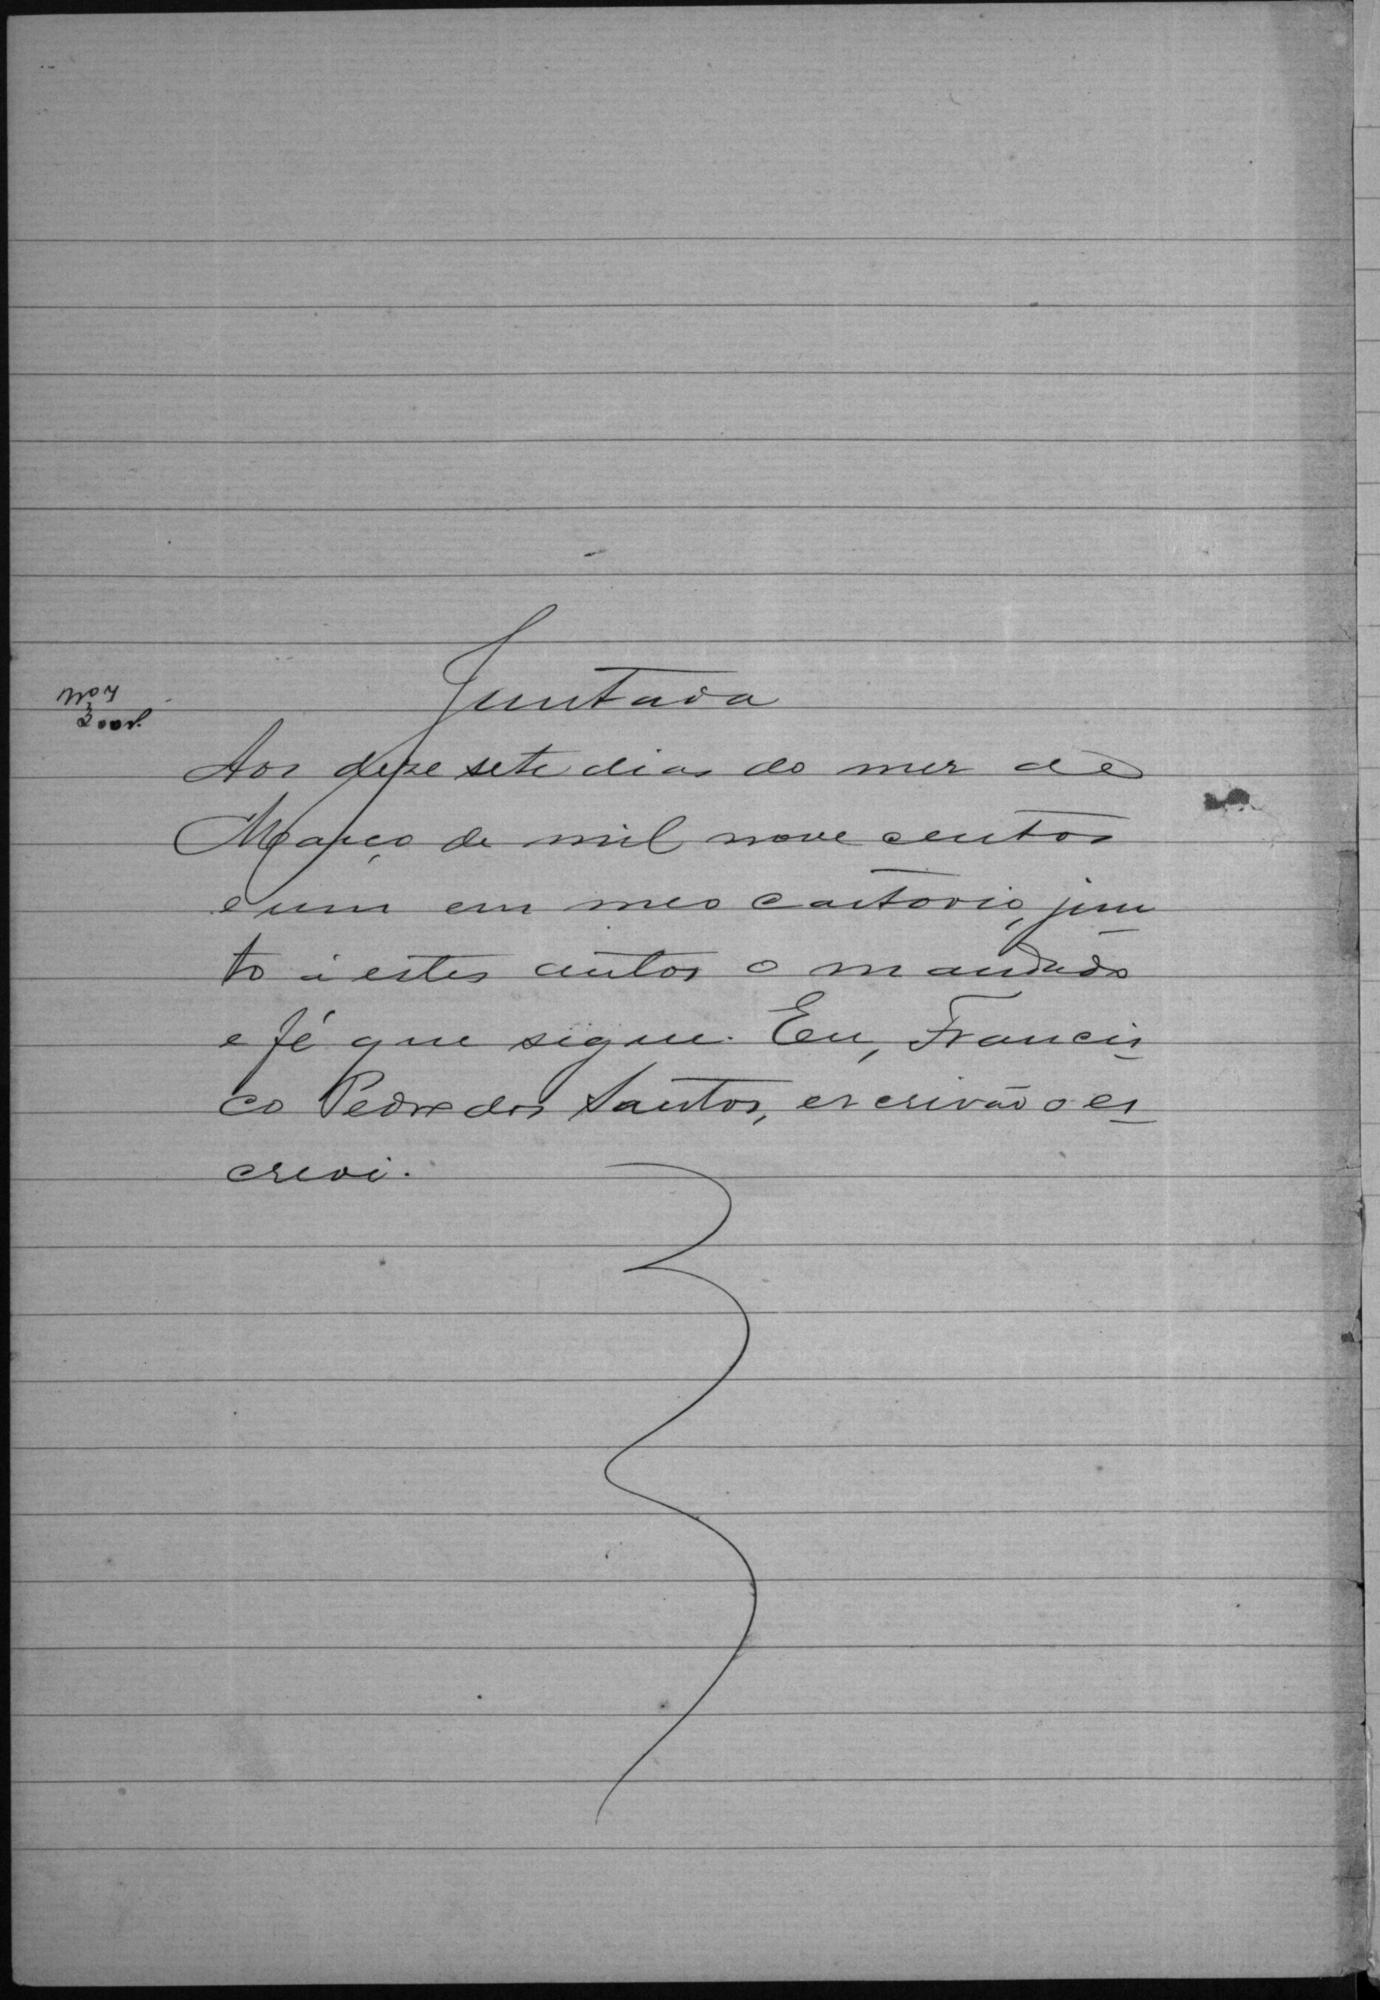 Juntada
Aos deze sete dias do mez de
Março de mil nove centos
e um em meo cartorio, jun
to á estes autos o mandado
e fé que sigue. Eu, Francis
co Pedro dos Santos, escrivão o es
crevi.